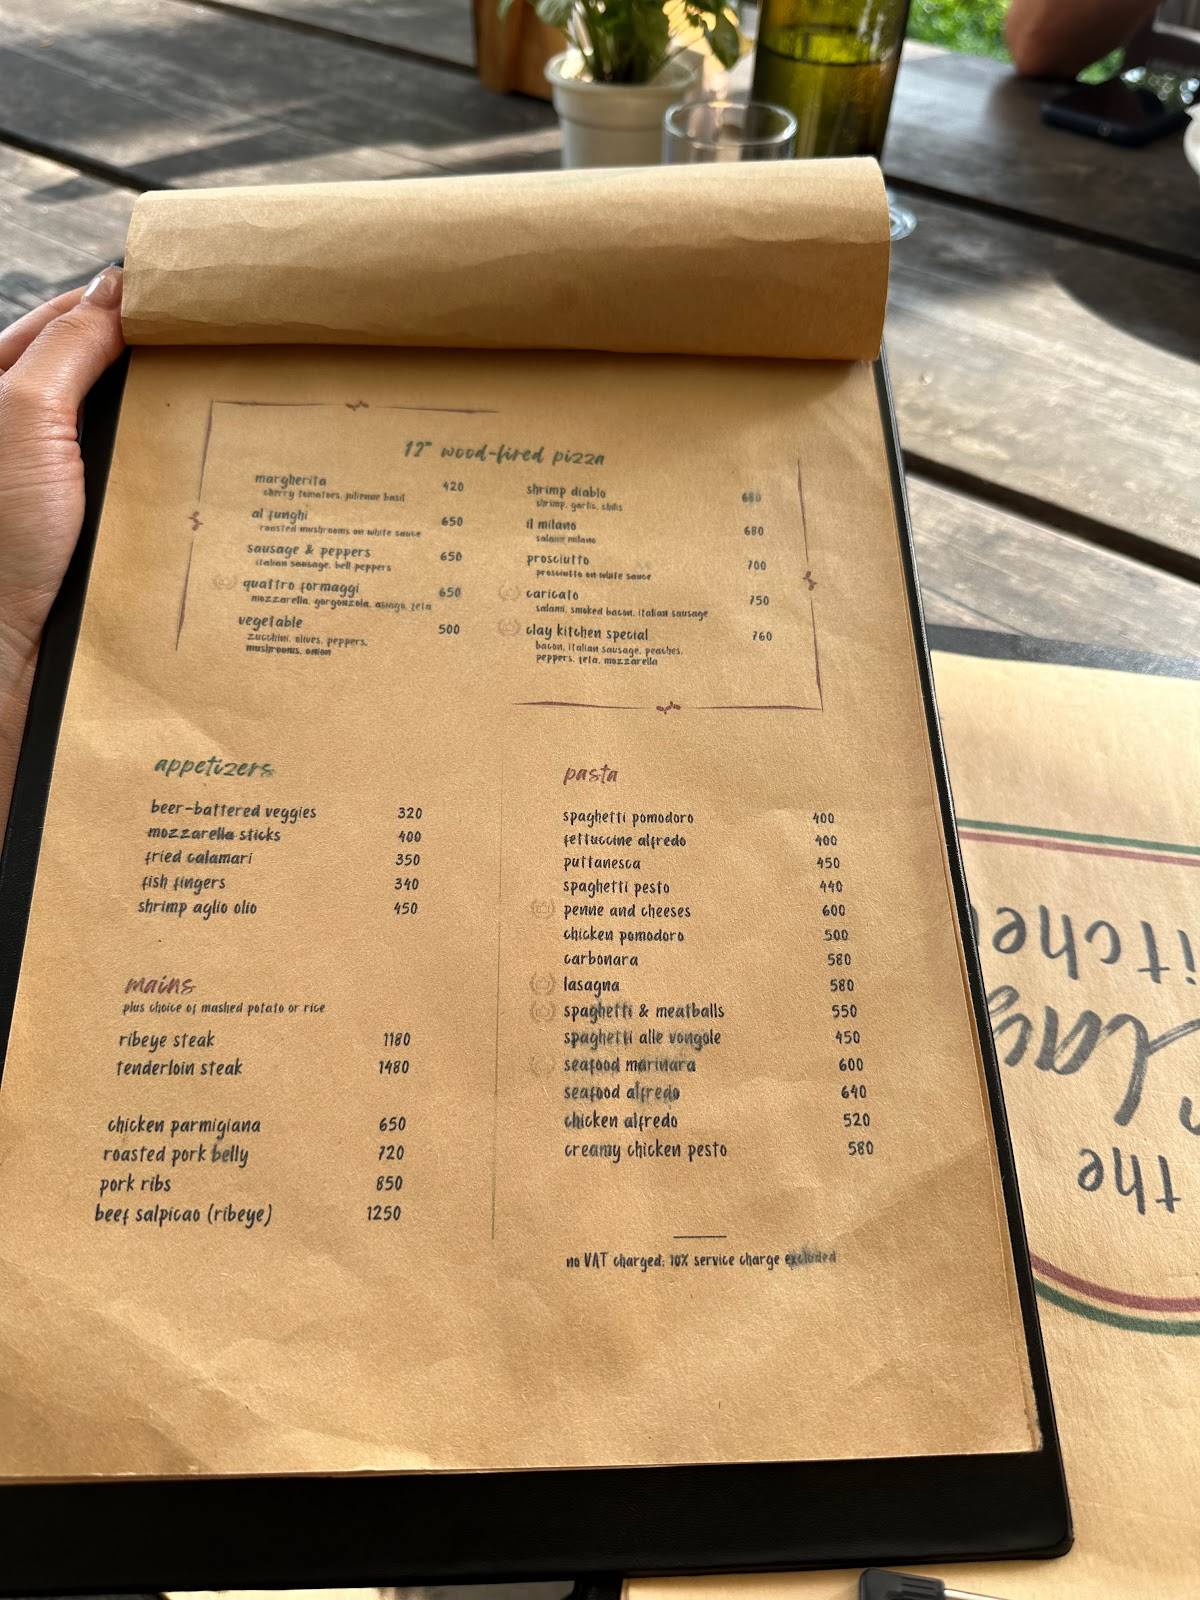 12" wood-fired pizza
margherita 420
cherry tomatoes, julienne basil
al funghi 650
roasted mushrooms on white sauce
sausage & peppers 650
italian sausage, bell peppers
quattro formaggi 650
mozzarella, gorgonzola, asiago, feta
vegetable 500
zucchini, olives, peppers,
mushrooms, onion
shrimp diablo 680
shrimp, garlic, chilis
il milano 680
salami milano
prosciutto 700
prosciutto on white sauce
caricato 750
salami, smoked bacon, italian sausage
clay kitchen special 760
bacon, italian sausage, peaches,
peppers, feta, mozzarella
appetizers
beer-battered veggies 320
mozzarella sticks 400
fried calamari 350
fish fingers 340
shrimp aglio olio 450
mains
plus choice of mashed potato or rice
ribeye steak 1180
tenderloin steak 1480
chicken parmigiana 650
roasted pork belly 720
pork ribs 850
beef salpicao (ribeye) 1250
pasta
spaghetti pomodoro 400
fettuccine alfredo 400
puttanesca 450
spaghetti pesto 440
penne and cheeses 600
chicken pomodoro 500
carbonara 580
lasagna 580
spaghetti & meatballs 550
spaghetti alle vongole 450
seafood marinara 600
seafood alfredo 640
chicken alfredo 520
creamy chicken pesto 580
no VAT charged; 10% service charge excluded
the